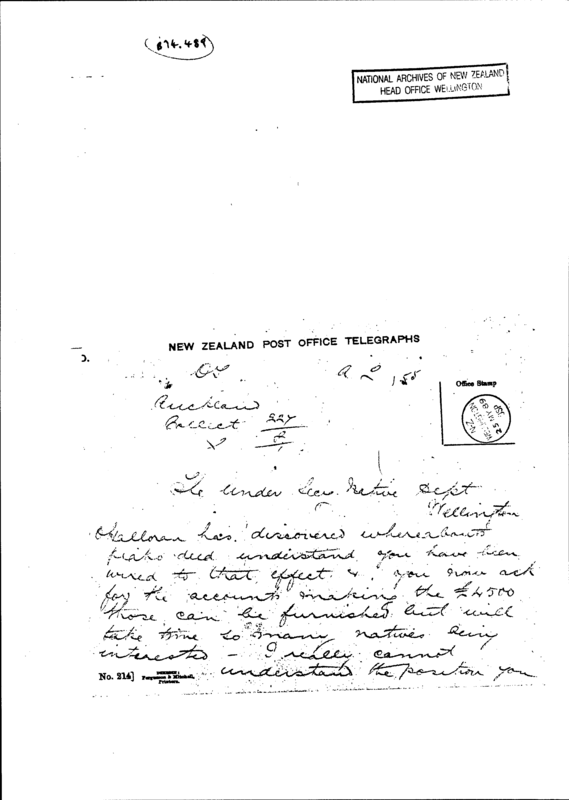 874.489
NATIONAL ARCHIVES OF NEW ZEALAND
HEAD OFFICE WELLINGTON
NEW ZEALAND POST OFFICE TELEGRAPHS
O.
Office Stamp
Auckland
Collect 227
25 MY 89
The Under Secy. Native Dept
Wellington
OHalloran has discovered whereabouts
piako deed understand you have been
wired to that effect & you now ask
for the accounts making the £4500
those can be furnished but will
take time so many natives being
interested - I really cannot
No. 214] Ferguson & Mitchell, Printers. understand the position you